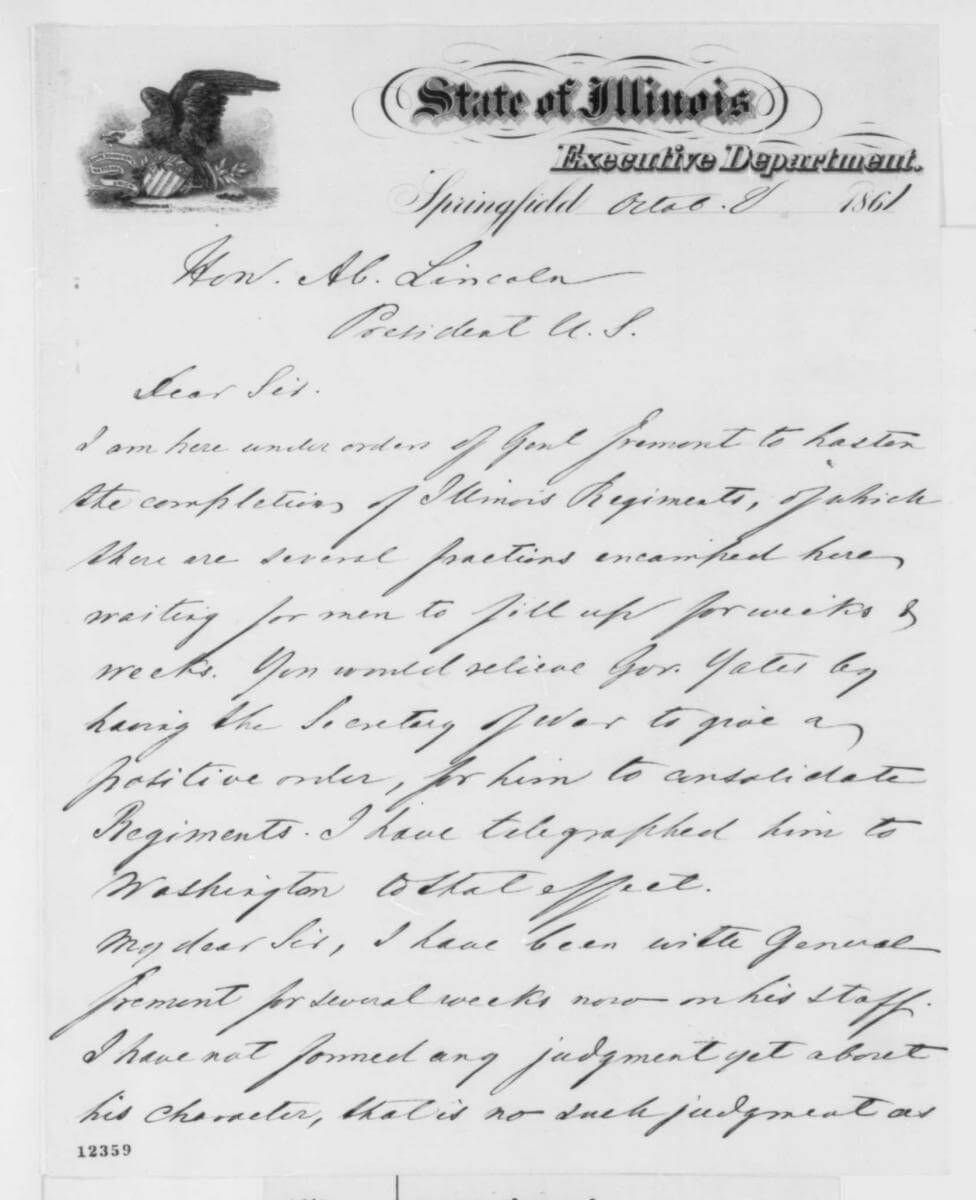 State of Illinois
Executive Department.
Springfield Octob. 8 1861
Hon. Ab. Lincoln
President U. S.
Dear Sir.
I am here under orders of Genl Fremont to hasten
the completion of Illinois Regiments, of which
there are several fractions encamped here
waiting for men to fill up for weeks &
weeks. You would relieve Gov. Yates by
having the Secretary of War to give a
positive order, for him to consolidate
Regiments. I have telegraphed him to
Washington to that effect.
My dear Sir, I have been with General
Fremont for several weeks now on his staff.
I have not formed any judgment yet about
his character, that is no such judgment as
12359